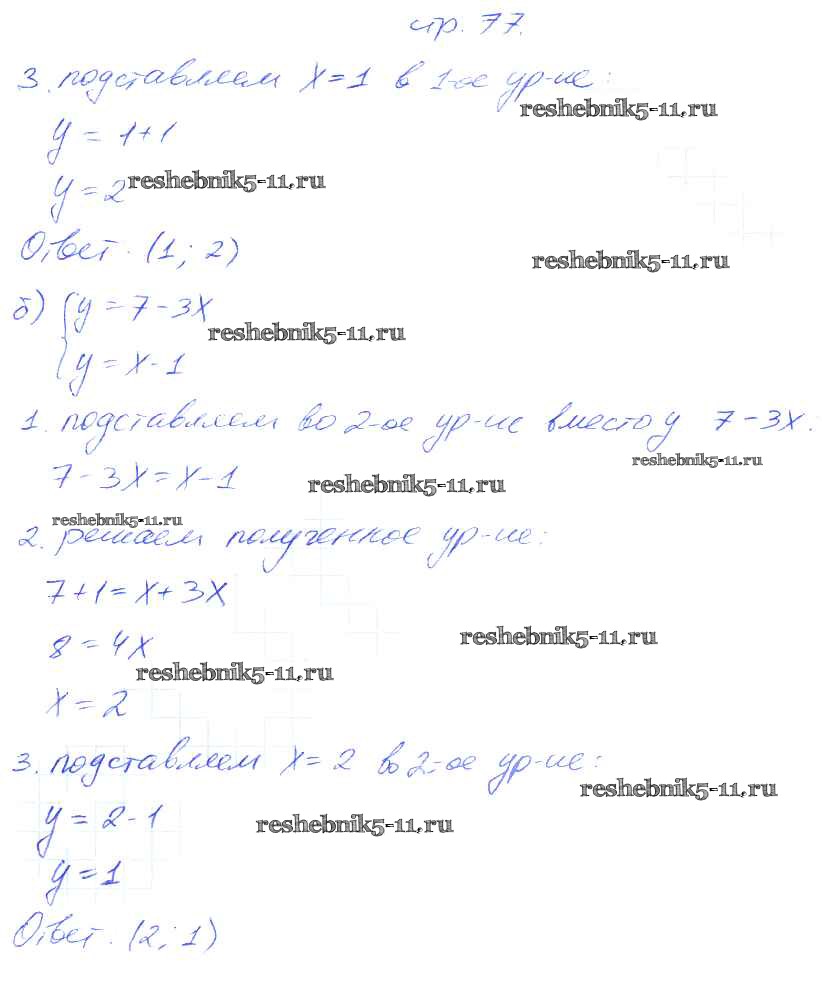 стр. 77.
3. подставляем x=1 в 1-ое ур-ие:
reshebnik5-11.ru
y = 1+1
y = 2
reshebnik5-11.ru
Ответ. (1; 2)
reshebnik5-11.ru
б) { y = 7 - 3x
reshebnik5-11.ru
y = x - 1
1. подставляем во 2-ое ур-ие вместо y 7-3x:
reshebnik5-11.ru
7 - 3x = x - 1
reshebnik5-11.ru
reshebnik5-11.ru
2. решаем полученное ур-ие:
7+1 = x+3x
reshebnik5-11.ru
8 = 4x
reshebnik5-11.ru
x = 2
3. подставляем x = 2 во 2-ое ур-ие:
reshebnik5-11.ru
y = 2 - 1
reshebnik5-11.ru
y = 1
Ответ. (2; 1)